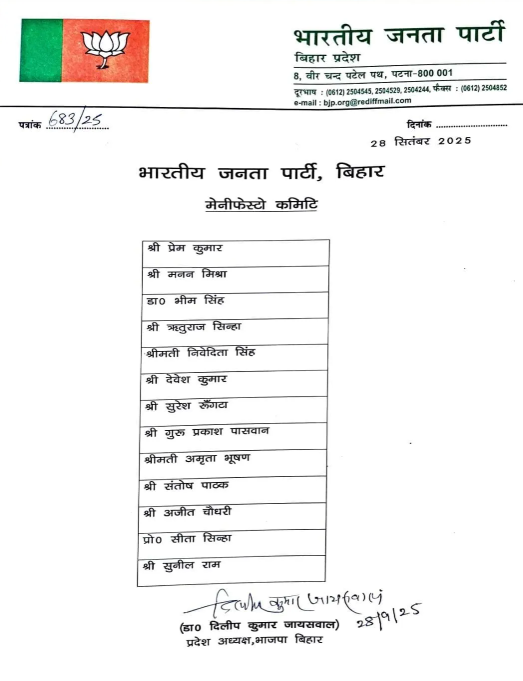 भारतीय जनता पार्टी
बिहार प्रदेश
8, वीर चन्द पटेल पथ, पटना-800 001
दूरभाष : (0612) 2504545, 2504529, 2504244, फैक्स : (0612) 2504852
e-mail : bjp.org@rediffmail.com
पत्रांक 683/25
दिनांक
28 सितंबर 2025
भारतीय जनता पार्टी, बिहार
मेनीफेस्टो कमिटि
श्री प्रेम कुमार
श्री मनन मिश्रा
डा0 भीम सिंह
श्री ऋतुराज सिन्हा
श्रीमती निवेदिता सिंह
श्री देवेश कुमार
श्री सुरेश रूँगटा
श्री गुरू प्रकाश पासवान
श्रीमती अमृता भूषण
श्री संतोष पाठक
श्री अजीत चौधरी
प्रो0 सीता सिन्हा
श्री सुनील राम
दिलीप कुमार जायसवाल
28/9/25
(डा0 दिलीप कुमार जायसवाल)
प्रदेश अध्यक्ष,भाजपा बिहार